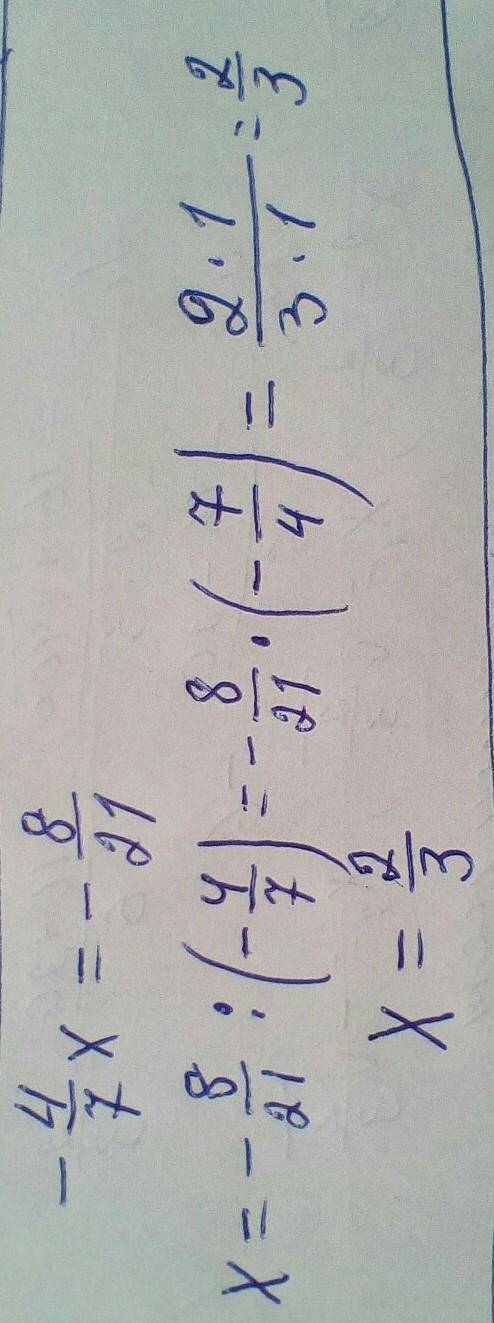 -4/7 x = -8/21
x = -8/21 : (-4/7) = -8/21 · (-7/4) = 2·1/3·1 = 2/3
x = 2/3